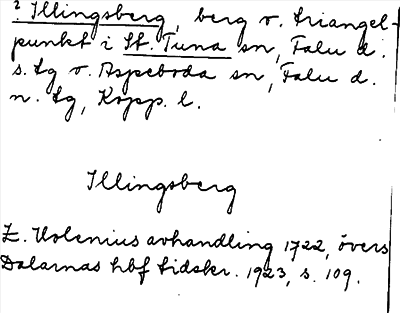 ? Illingsberg, berg o. triangel-
punkt i St. Tuna sn, Falu d.
s. tg o. Aspeboda sn, Falu d.
n. tg, Kopp. l.
Illingsberg
E. Holenius avhandling 1722, övers
Dalarnas hbf tidskr. 1923, s. 109.